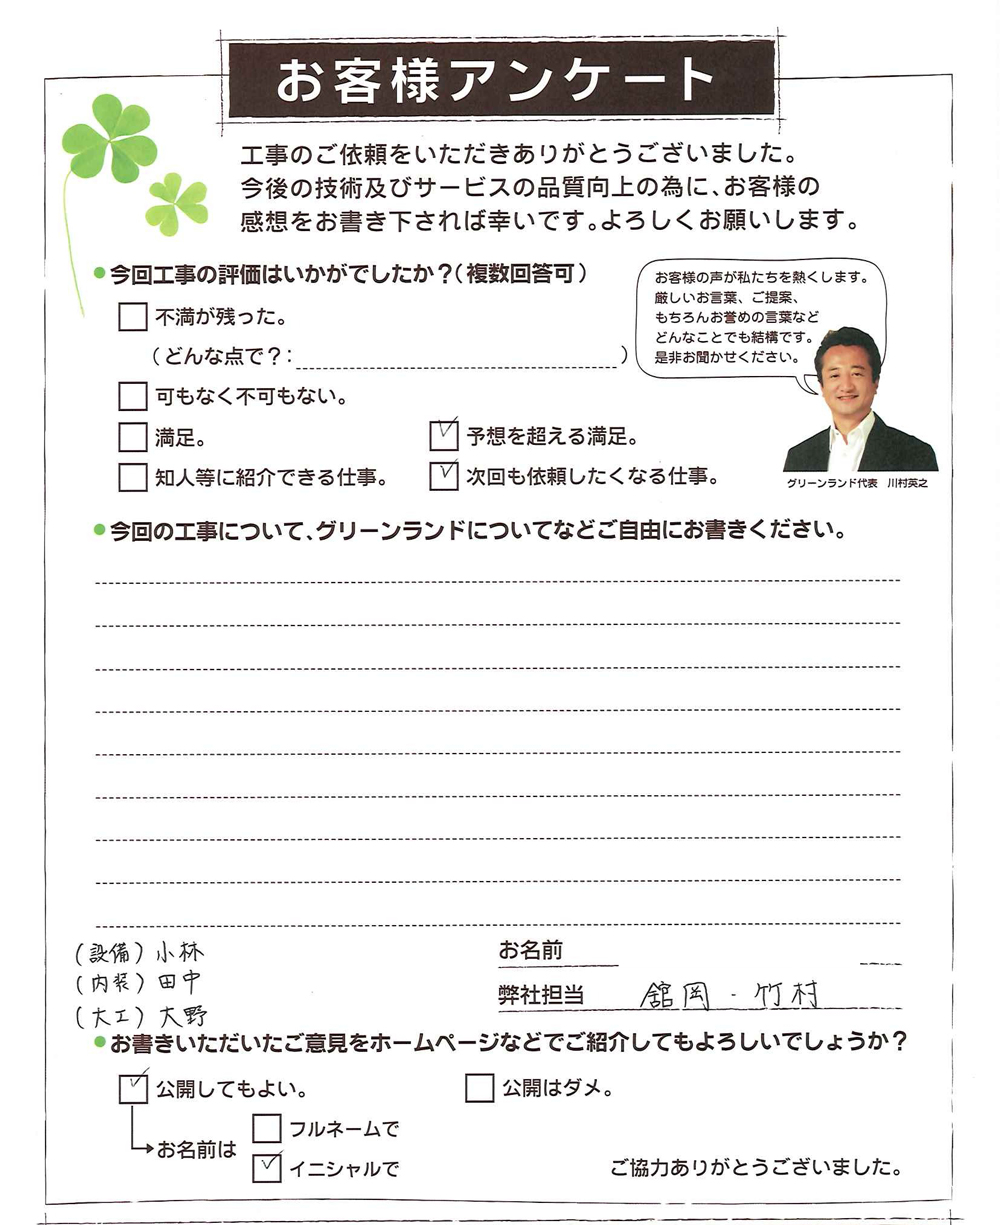 お客様アンケート
工事のご依頼をいただきありがとうございました。
今後の技術及びサービスの品質向上の為に、お客様の
感想をお書き下されば幸いです。よろしくお願いします。
●今回工事の評価はいかがでしたか？（複数回答可）
不満が残った。
（どんな点で？：　）
可もなく不可もない。
満足。
予想を超える満足。
知人等に紹介できる仕事。
次回も依頼したくなる仕事。
お客様の声が私たちを熱くします。
厳しいお言葉、ご提案、
もちろんお誉めの言葉など
どんなことでも結構です。
是非お聞かせください。
グリーンランド代表　川村英之
●今回の工事について、グリーンランドについてなどご自由にお書きください。
(設備) 小林
(内装) 田中
(大工) 大野
お名前
弊社担当　舘岡・竹村
●お書きいただいたご意見をホームページなどでご紹介してもよろしいでしょうか？
公開してもよい。
公開はダメ。
お名前は
フルネームで
イニシャルで
ご協力ありがとうございました。